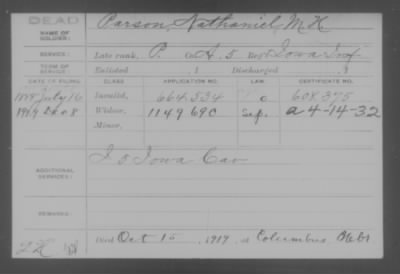 DEAD
NAME OF SOLDIER: Parson, Nathaniel, M. H.
SERVICE: Late rank, P. Co A. 5 Reg't Iowa Inf
TERM OF SERVICE: Enlisted , 1 Discharged , 1
DATE OF FILING. CLASS APPLICATION NO. LAW. CERTIFICATE NO.
July 16 Invalid, 664,534 608,375
1919 Dec 8 Widow, 1149690 Sep. a 4-14-32
Minor,
ADDITIONAL SERVICES: I 5 Iowa Cav
REMARKS:
Died Oct 15, 1919, at Columbus Nebr